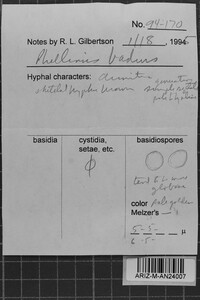 No. 94-170
Notes by R. L. Gilbertson 1/18, 1994
Phellinus badius
Hyphal characters: dimitic
skeletal hyphae brown simple septate
pale
basidia cystidia, setae, etc. basidiospores
ϕ
globose
color pale golden
Melzer's –
5-5-
6-5- µ
ARIZ-M-AN24007